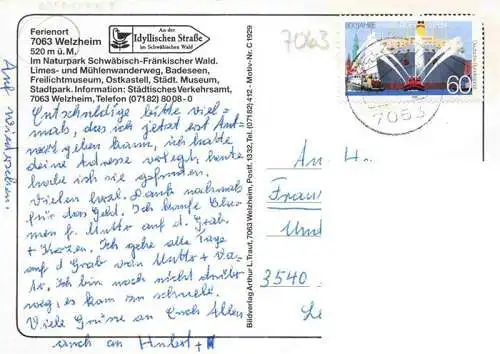 Ferienort
7063 Welzheim
520 m ü.M.
An der
Idyllischen Straße
im Schwäbischen Wald
Im Naturpark Schwäbisch-Fränkischer Wald.
Limes- und Mühlenwanderweg, Badeseen,
Freilichtmuseum, Ostkastell, Städt. Museum,
Stadtpark. Information: Städtisches Verkehrsamt,
7063 Welzheim, Telefon (07182) 8008-0
Entschuldige bitte viel-
mals, das ich jetzt erst Ant-
wort geben kann, ich hatte
deine Adresse verlegt, heute
habe ich sie gefunden.
Vielen herzl. Dank nochmals
für das Geld. Ich kaufe Blu-
men f. Mutter auf d. Grab.
+ Kerzen. Ich gehe alle Tage
auf d Grab von Mutter + Va-
ter. Ich bin noch nicht drüber
weg, es kam so schnell.
Viele Grüße an Euch Allen
auch an Hubert +
Auf wiedersehen.
Bildverlag Arthur L. Traut, 7063 Welzheim, Postf. 1332, Tel. (07182) 412 - Motiv-Nr. C 1929
7063
800 JAHRE
60
7063
An H
Frau
Und
3540